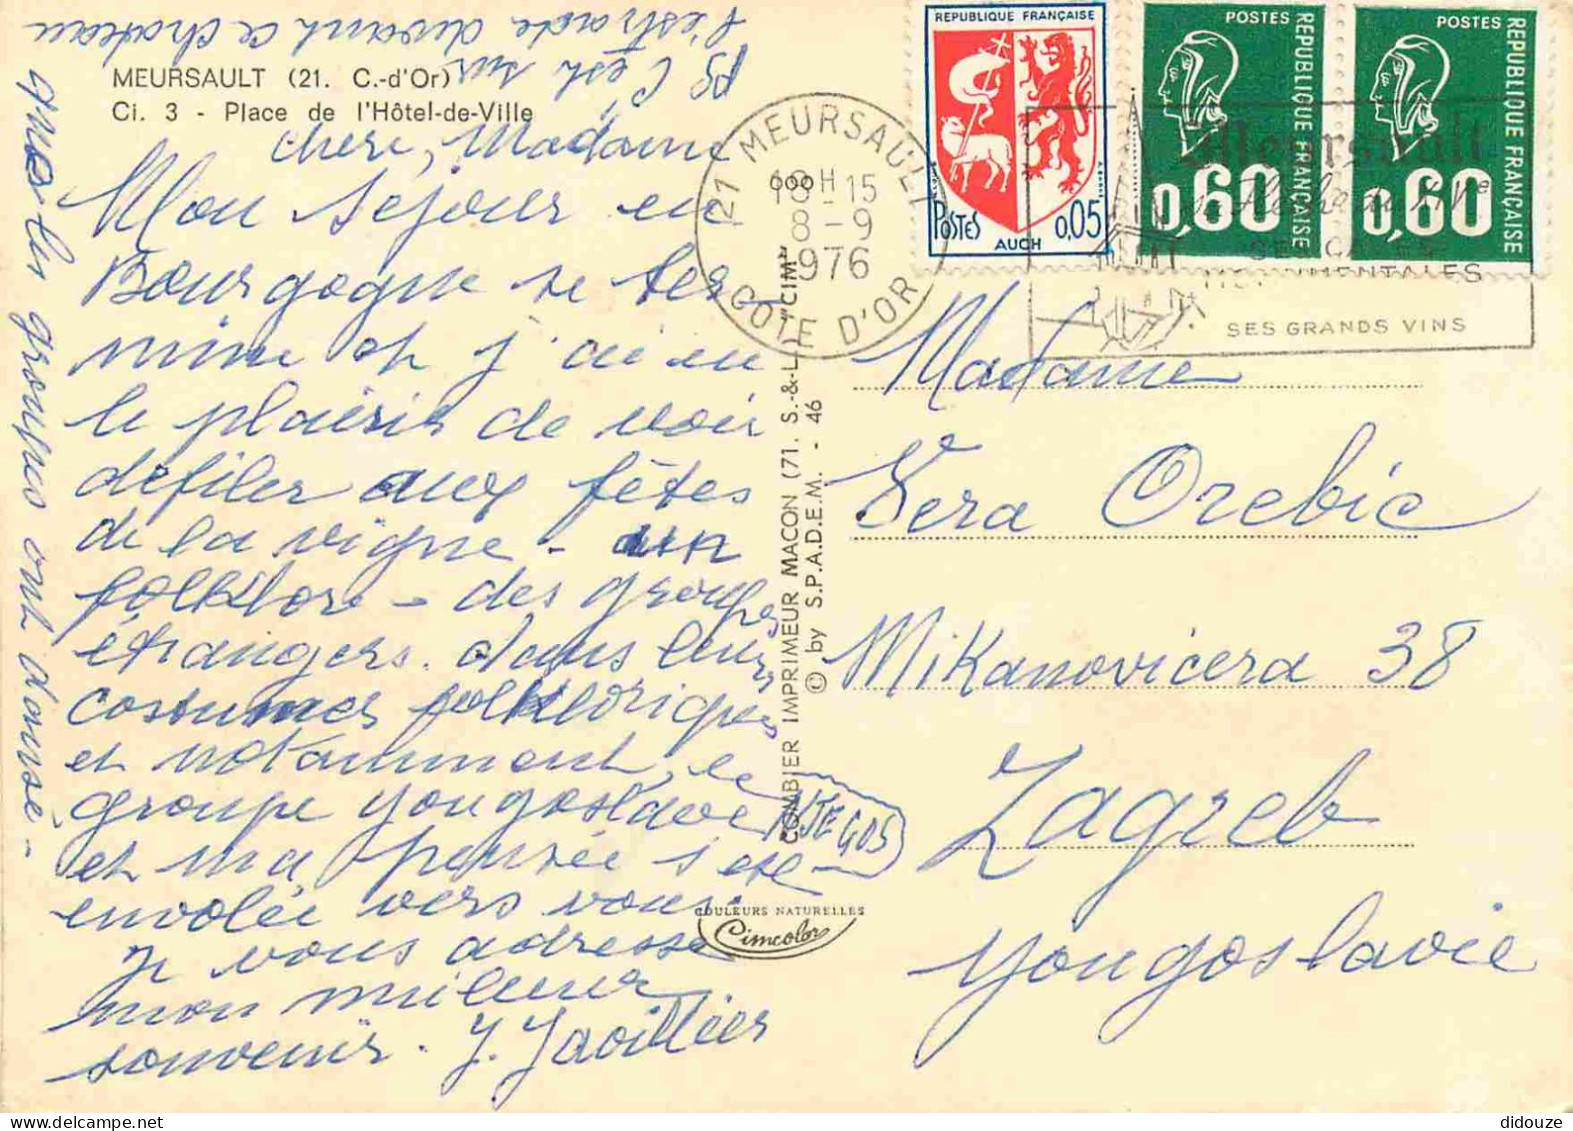 MEURSAULT (21. C.-d'Or)
Ci. 3 - Place de l'Hôtel-de-Ville
chère, Madame
Mon séjour en
Bourgogne se ter-
mine et j'ai eu
le plaisir de voir
défiler aux fêtes
de la vigne - un
folklore - des groupes
étrangers dans leurs
costumes folkloriques
et notamment, le
groupe yougoslave
et ma pensée s'est
envolée vers vous.
Je vous adresse
mon meilleur
souvenir. J. Javillier
PS C'est sur
l'estrade devant ce château
que les groupes ont dansé.-
COMBIER IMPRIMEUR MACON (71. S.-&-L.) "CIM"
© by S.P.A.D.E.M. - 46
COULEURS NATURELLES
Cimcolor
REPUBLIQUE FRANÇAISE
POSTES
AUCH
0,05
POSTES
REPUBLIQUE FRANÇAISE
0,60
POSTES
REPUBLIQUE FRANÇAISE
0,60
21 MEURSAULT
18H15
8-9
1976
COTE D'OR
Meursault
SES GRANDS VINS
Madame
Vera Orebic
Mikanovicera 38
Zagreb
Yougoslavie
didouze